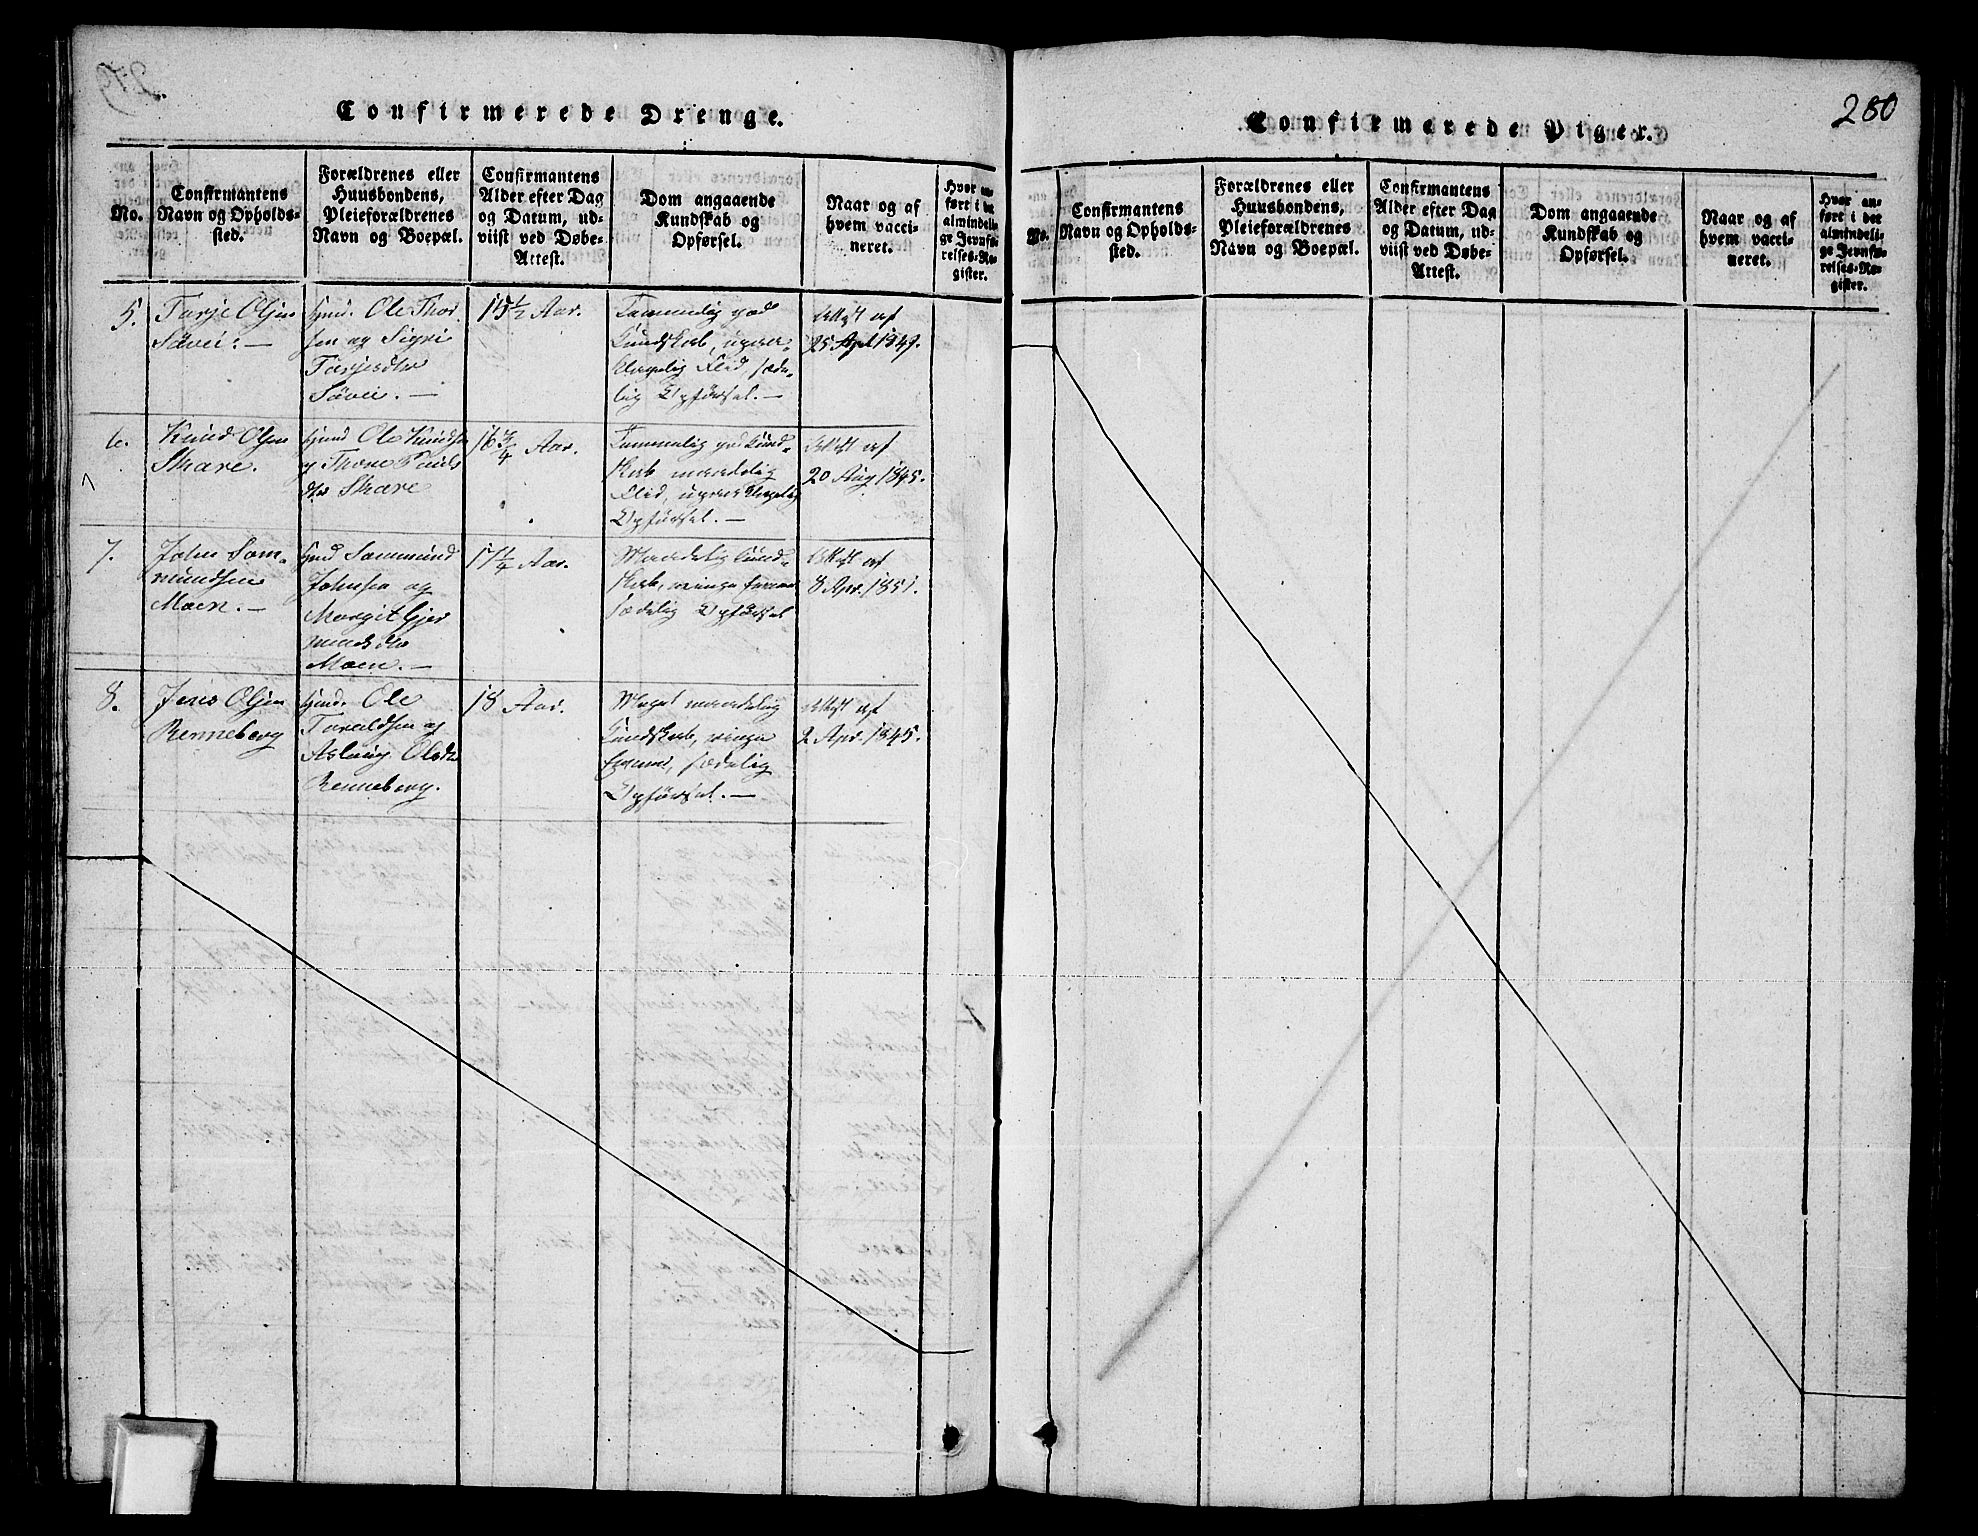 Confirmerede Drenge.
No.
Confirmantens
Navn og Opholds-
sted.
Forældrenes eller
Huusbondens,
Pleieforældrenes
Navn og Boepæl.
Confirmantens
Alder efter Dag
og Datum, ud-
viist ved Døbe-
Attest.
Dom angaaende
Kundskab og
Opførsel.
Naar og af
hvem vacci-
neret.
Hvor an-
ført i det
almindeli-
ge Jevnfø-
relses-Re-
gister.
5.
Tarje Olsen
Ole Thor-
sen og Sigri
Tarjesdtr
15½ Aar.
Temmelig god
Kundskab,
Flid, sæde-
lig Opførsel. —
Attest af
25 Apl 1849.
6.
Knud Olsen
Skare.
Ole Knudsen
og Thone
dtr Skare
16¾ Aar.
Temmelig god Kund-
skab maadelig
Flid, uprørklagelig
Opførsel. —
Attest af
20 Aug 1845.
7.
John Som-
mundsen
Moen. —
Sommund
Johnsen og
Margit Gjer
mundsdtr
Moen. —
17¼ Aar.
Maadelig Kund-
skab, ringe
sædelig Opførsel
Attest af
8 Apr. 1851.
8.
Jens Olsen
Renneberg
Ole
Taraldsen og
Aslaug Olsdtr
Renneberg.
18 Aar.
Meget maadelig
Kundskab, ringe
sædelig
Opførsel. —
Attest af
2 Apr. 1845.
280
Confirmerede Piger.
No.
Confirmantens
Navn og Opholds-
sted.
Forældrenes eller
Huusbondens,
Pleieforældrenes
Navn og Boepæl.
Confirmantens
Alder efter Dag
og Datum, ud-
viist ved Døbe-
Attest.
Dom angaaende
Kundskab og
Opførsel.
Naar og af
hvem vacci-
neret.
Hvor an-
ført i det
almindeli-
ge Jevnfø-
relses-Re-
gister.